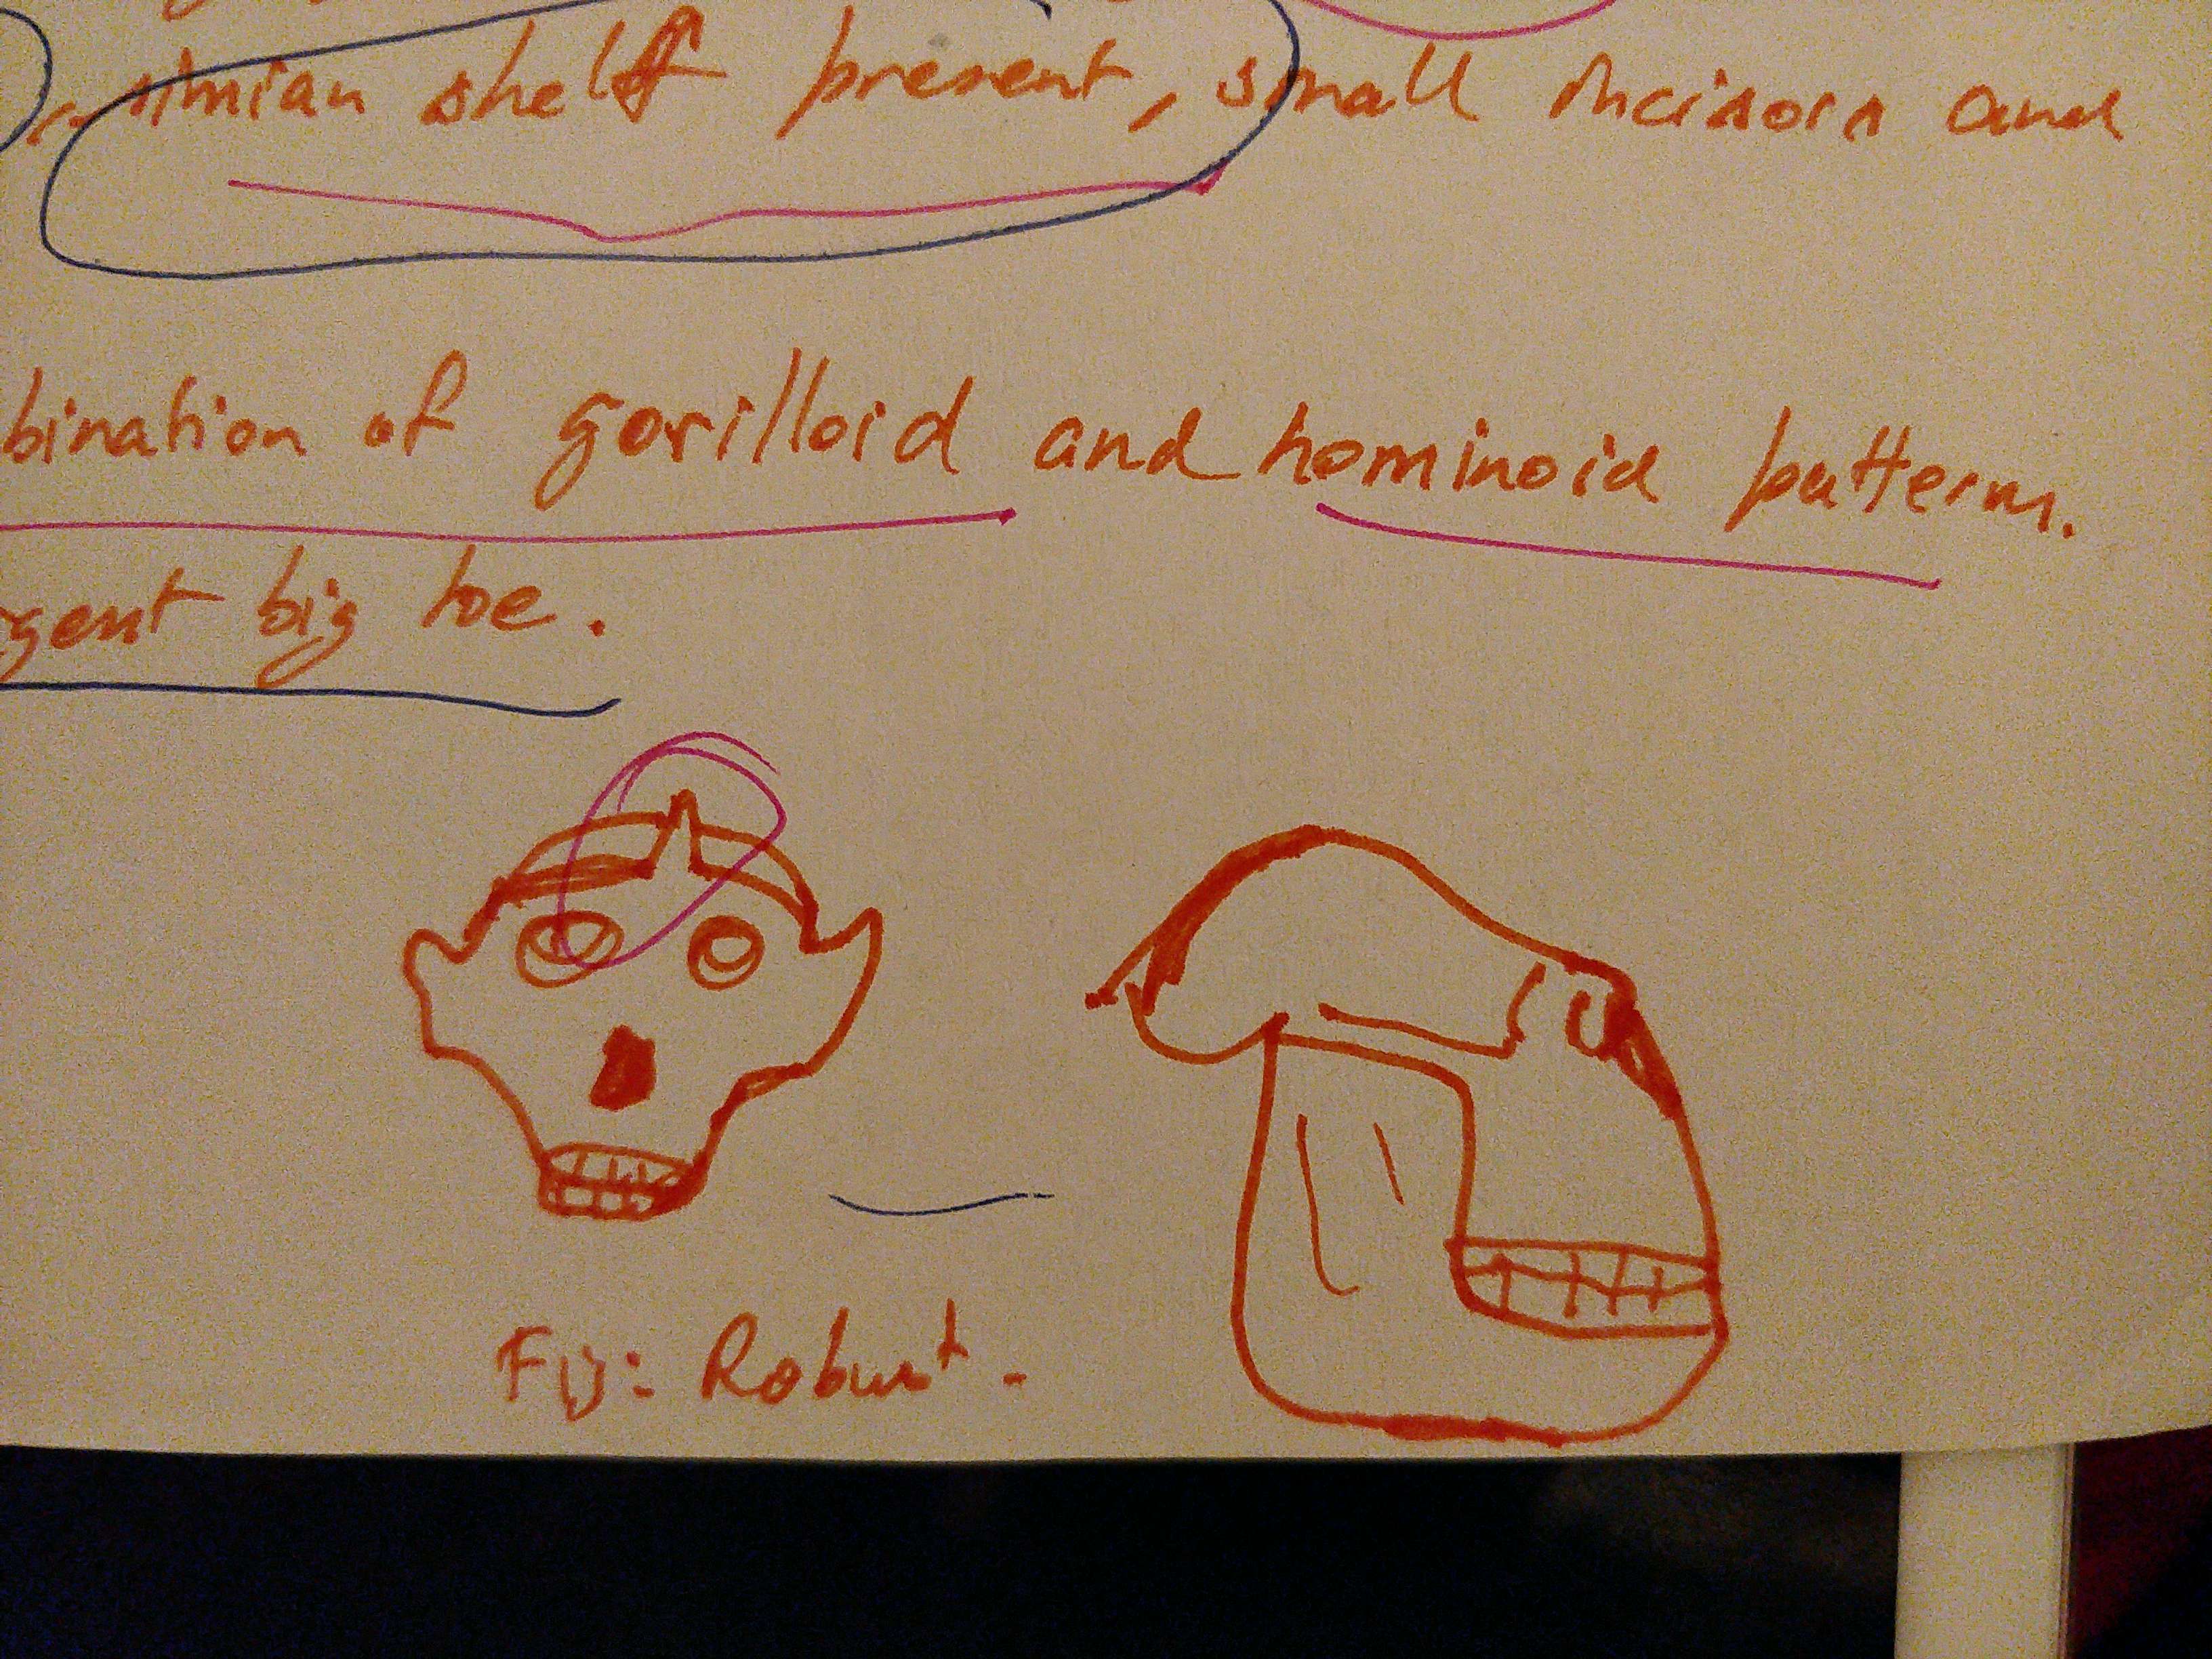 simian shelf present, small incisors and
bination of gorilloid and hominoid pattern.
gent big toe.
Fig: Robust.